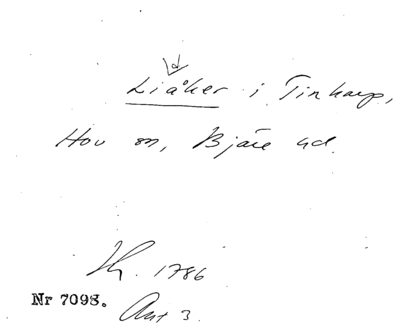 d
Liåker i Tinkarp,
Hov sn, Bjäre hd.
Th. 1786
Nr 7098. Ant 3.